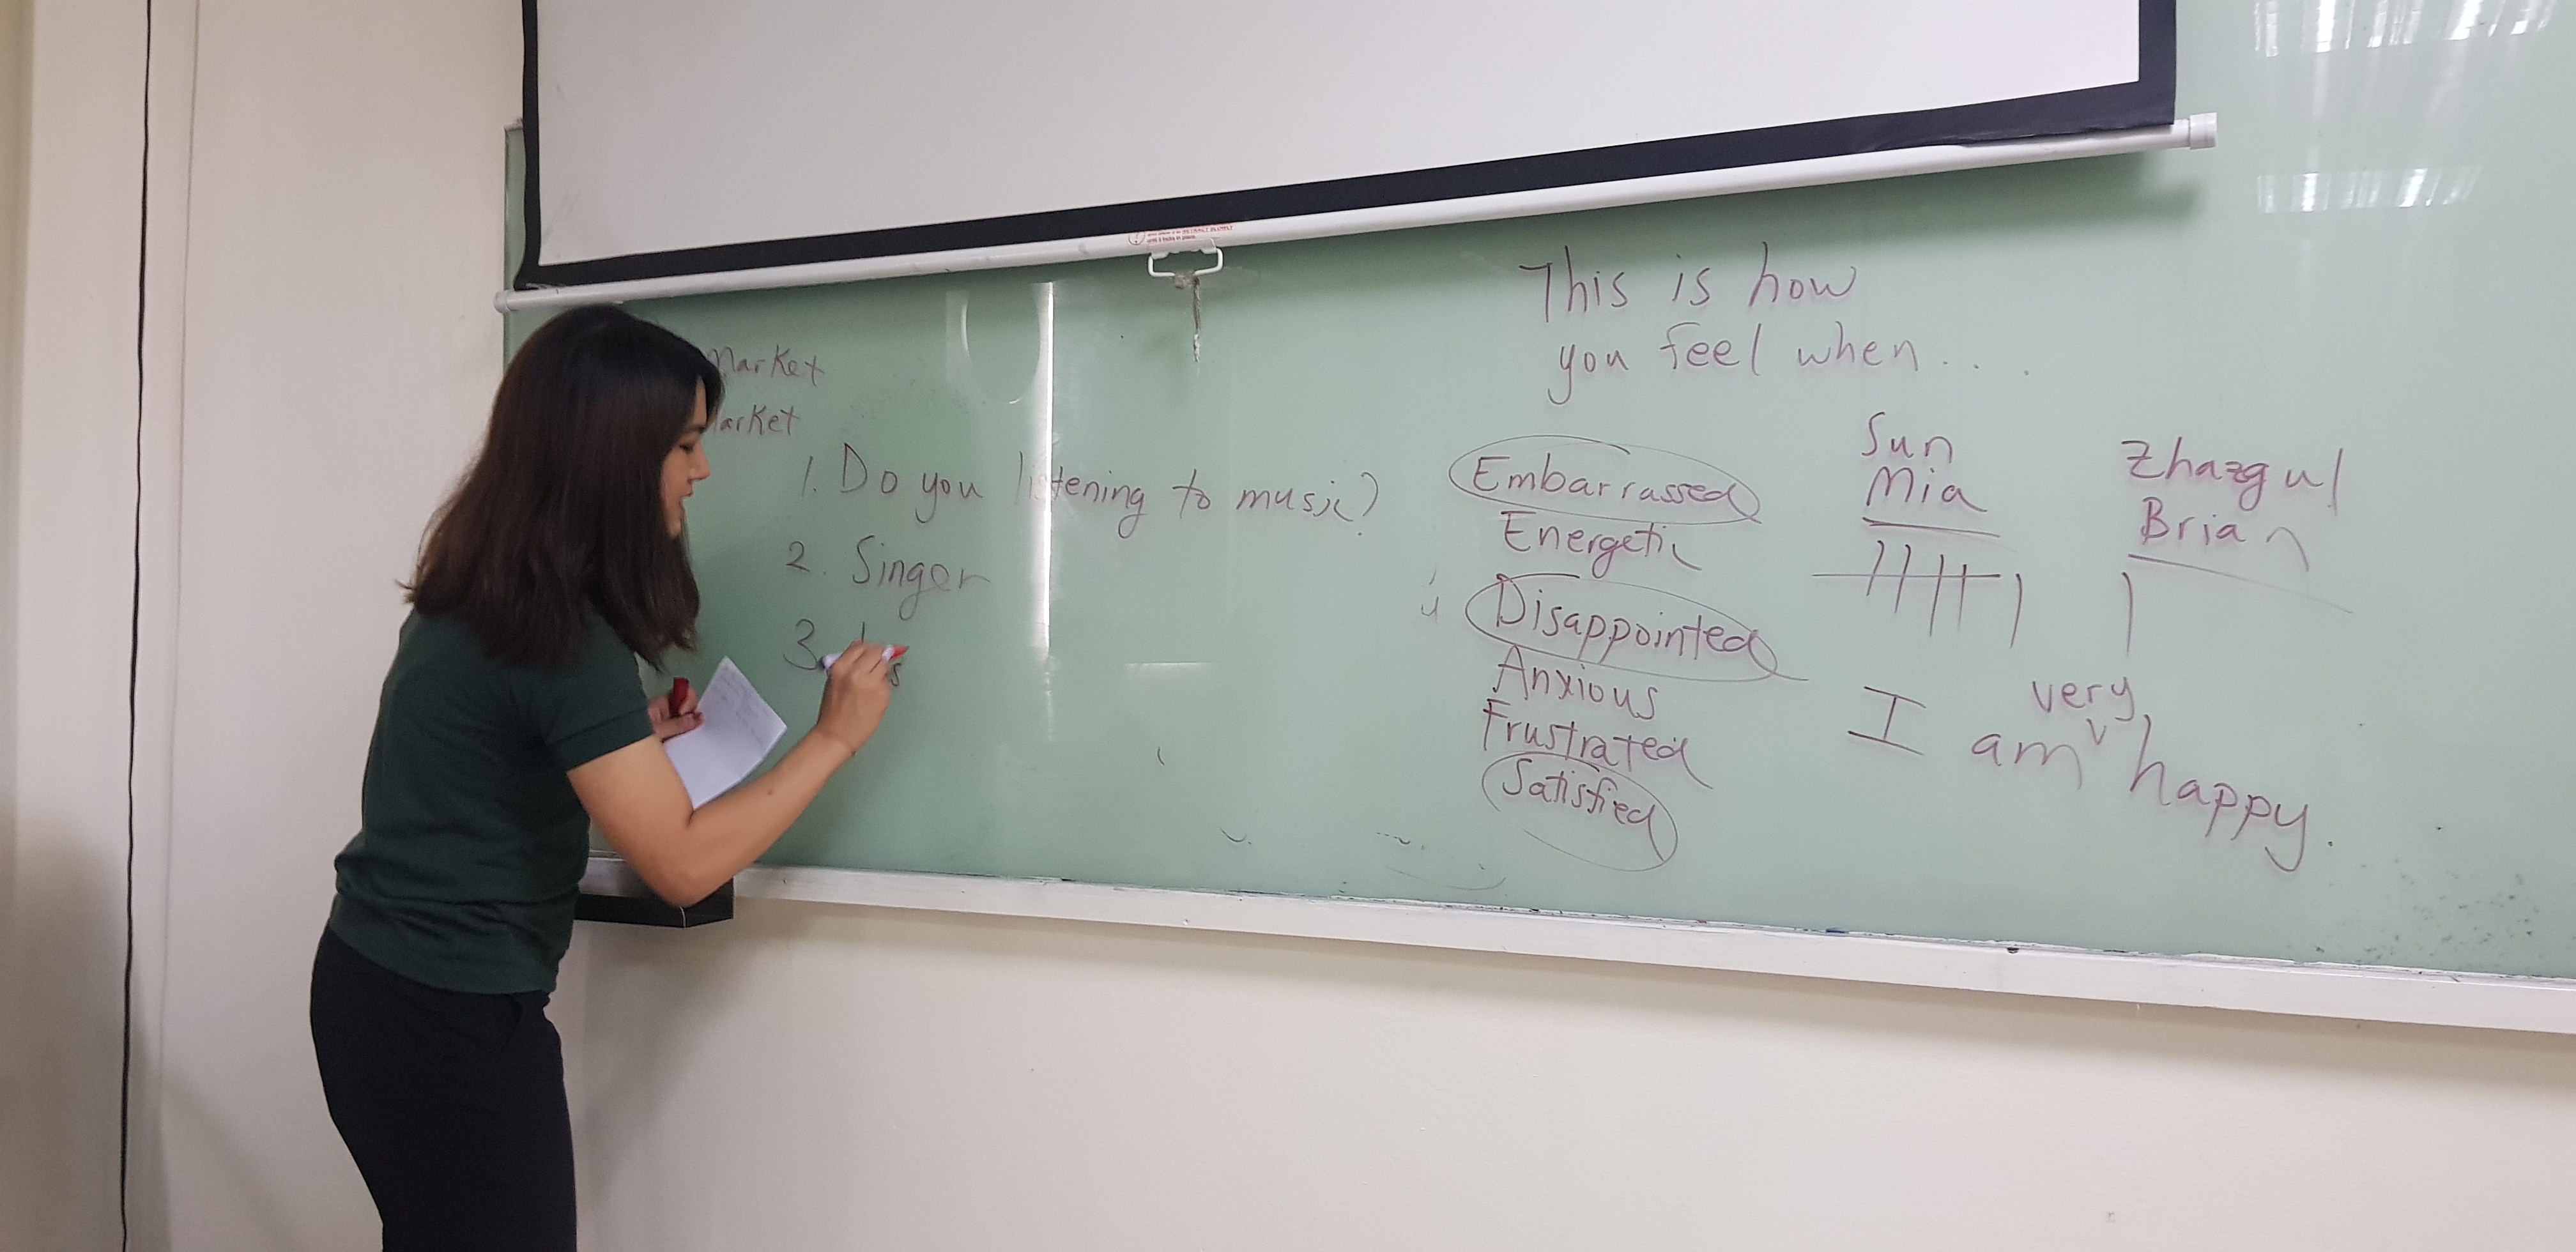 Market
arket
1. Do you listening to music?
2. Singer
3.
This is how
you feel when...
Embarrassed
Energetic
Disappointed
Anxious
Frustrated
Satisfied
Sun
Mia
Zhazgul
Brian
very
I am happy.